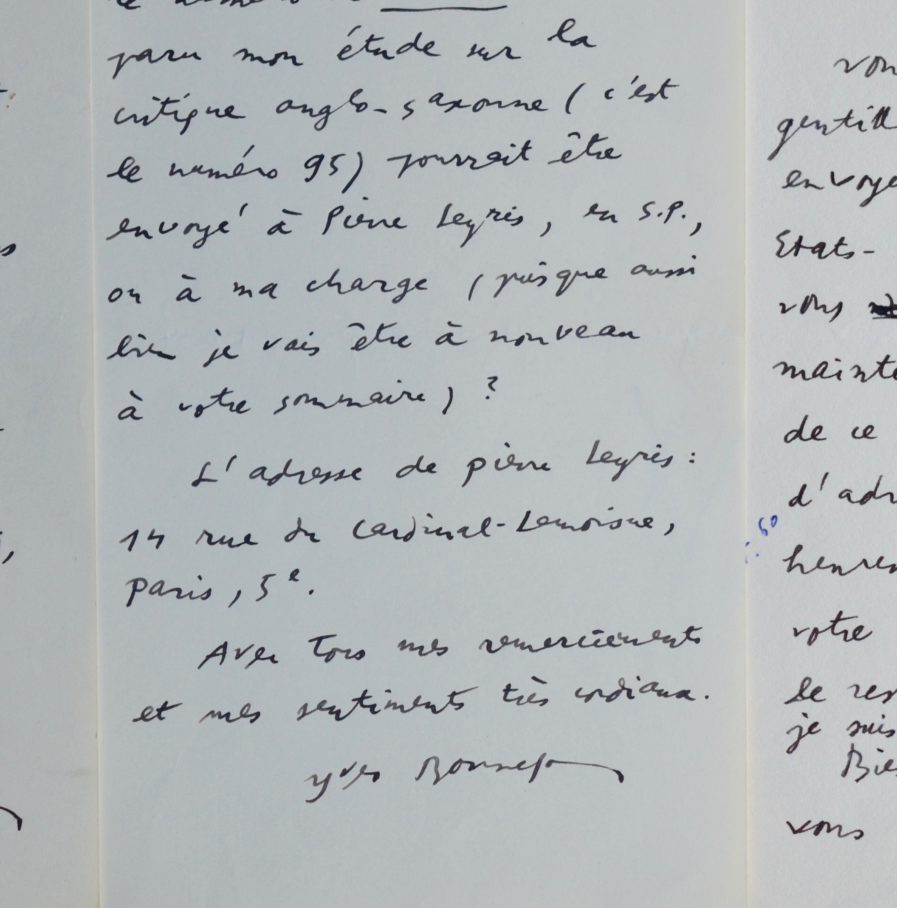 paru mon étude sur la
critique anglo-saxonne (c'est
le numéro 95) pourrait être
envoyé à Pierre Leyris, en S.P.,
ou à ma charge (puisque aussi
bien je vais être à nouveau
à votre sommaire) ?
L'adresse de Pierre Leyris :
14 rue du Cardinal-Lemoisne,
Paris, 5e.
Avec tous mes remerciements
et mes sentiments très cordiaux.
Yves Bonnefoy
vou
gentill
envoye
Etats-
vous
mainte
de ce
d'adr
heureu
votre
le res
je suis
Bie
vous